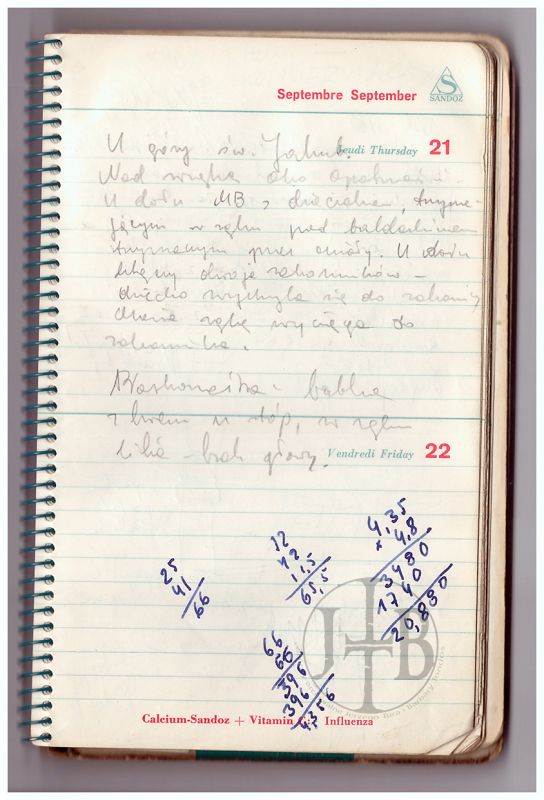 Septembre September
SANDOZ
U góry św. Jakub.
Jeudi Thursday 21
Nad wnęką oko opatrzności.
U dołu MB z dzieciątkiem, trzyma-
jącym w ręku pod baldachimem
trzymanym przez anioły. U dołu
klęczy dwoje zakonników –
dziecko wychyla się do zakonnicy
rękę wyciąga do
zakonnika.
z lwem u stóp, w ręku
lilia – brak głowy.
Vendredi Friday 22
25
41
66
12
42
11,5
65,5
4,35
× 4,8
3480
1740
20,880
66
66
396
396
4356
JTB
Calcium-Sandoz + Vitamin C: Influenza